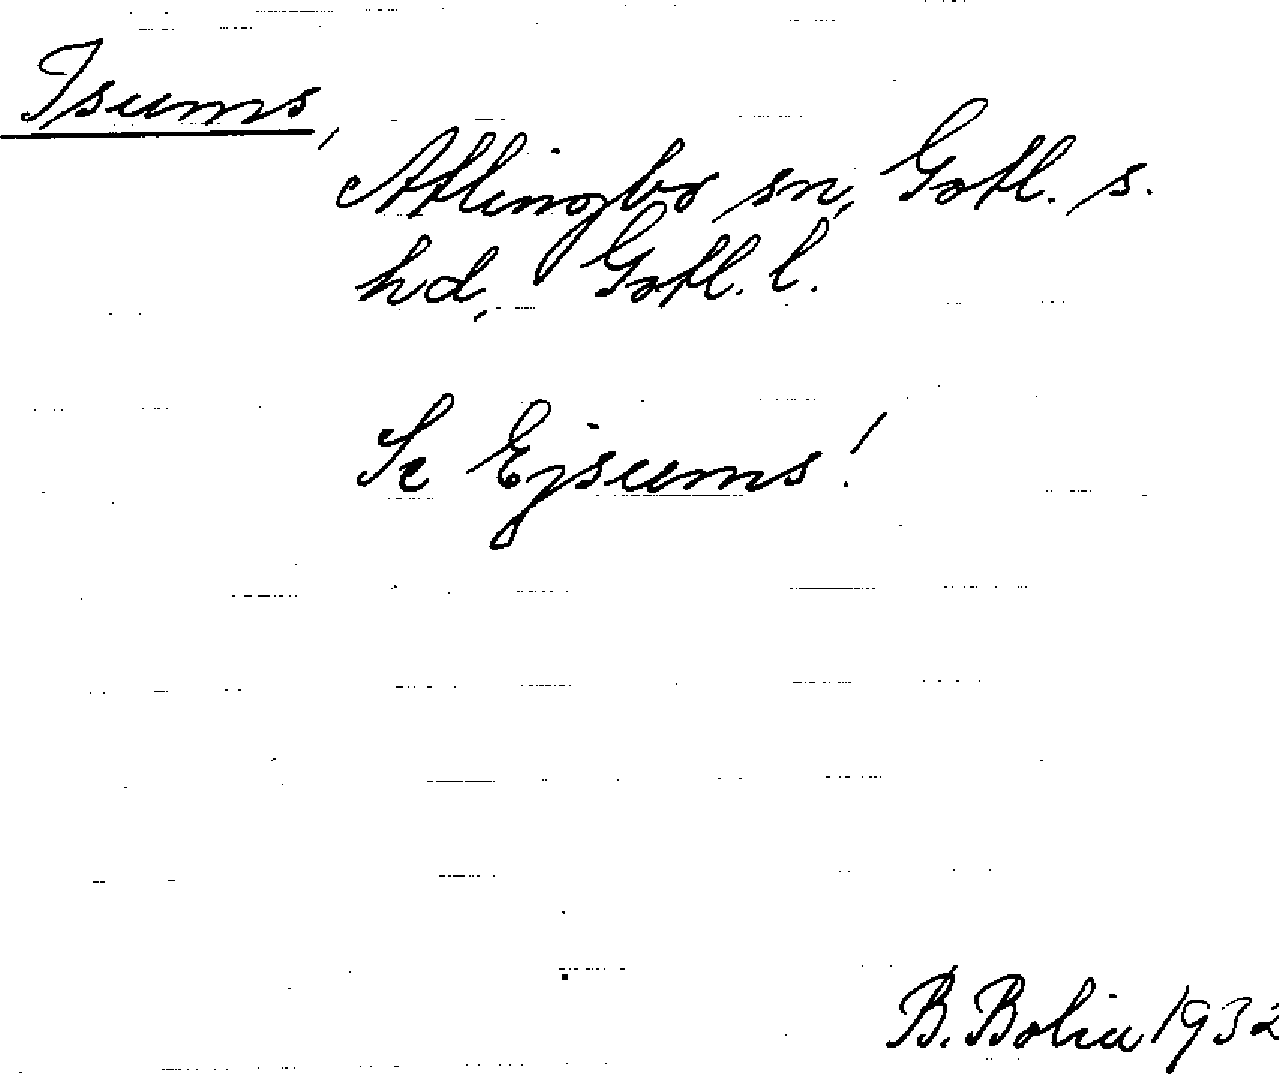 Isums,
Atlingbo sn, Gotl. s.
hd, Gotl. l.
Se Ejsums!
B. Bolin 1932